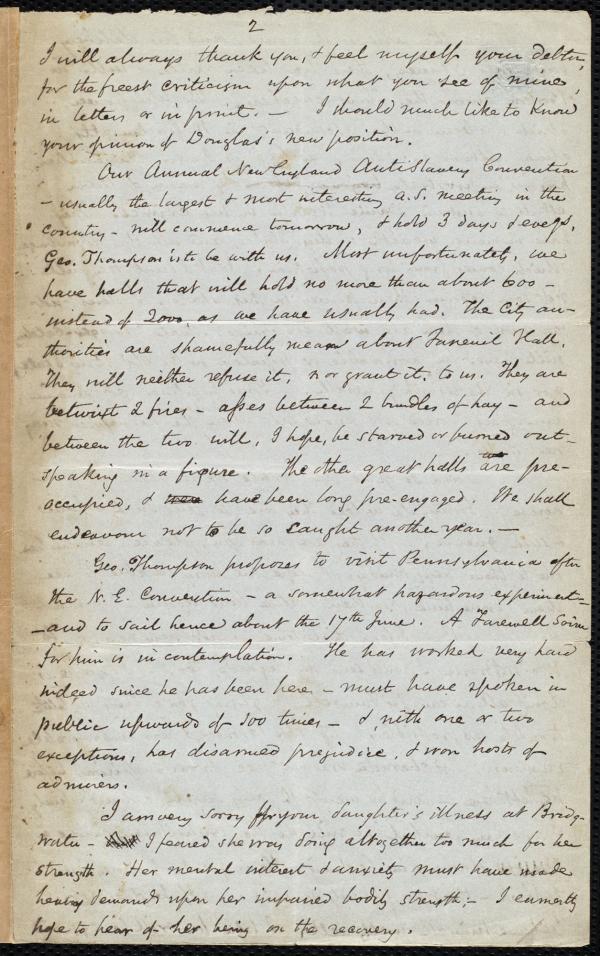 2
I will always thank you, & feel myself your debtor,
for the freest criticism upon what you see of mine,
in letters or in print. — I should much like to know
your opinion of Douglas's new position.
Our Annual New England AntiSlavery Convention
- usually the largest & most interesting a.s. meeting in the
country - will commence tomorrow, & hold 3 days & evegs.
Geo. Thompson is to be with us. Most unfortunately, we
have halls that will hold no more than about 600 -
instead of 2000, as we have usually had. The City au-
thorities are shamefully mean about Faneuil Hall.
They will neither refuse it, nor grant it, to us. They are
betwixt 2 fires - asses between 2 bundles of hay - and
between the two will, I hope, be starved or burned out -
speaking in a figure. The other great halls are pre-
occupied, & have been long pre-engaged. We shall
endeavour not to be so caught another year. —
Geo. Thompson proposes to visit Pennsylvania after
the N. E. Convention - a somewhat hazardous experiment -
- and to sail hence about the 17th June. A Farewell Soirée
for him is in contemplation. He has worked very hard
indeed since he has been here - must have spoken in
public upwards of 200 times - &, with one or two
exceptions, has disarmed prejudice, & won hosts of
admirers.
I am very sorry for your daughter's illness at Bridg-
water - I feared she was doing altogether too much for her
strength. Her mental interest & anxiety must have made
heavy demands upon her impaired bodily strength; - I earnestly
hope to hear of her being on the recovery.